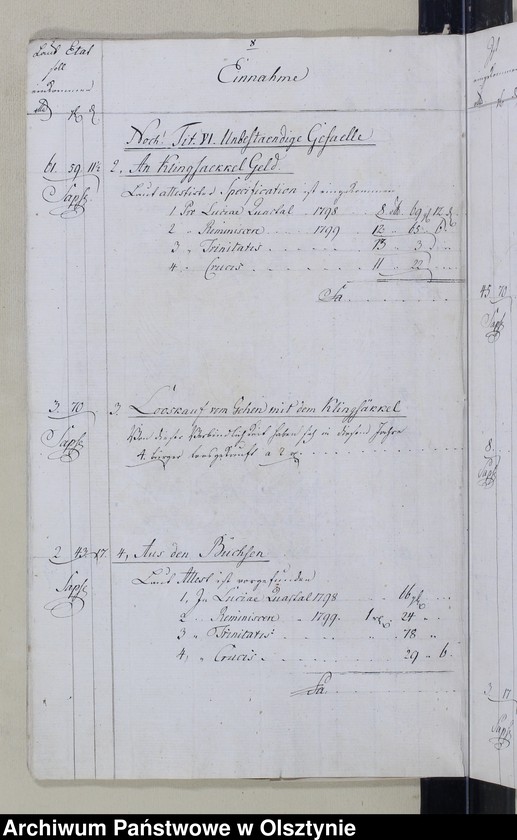 8
Laut Etat
soll
einkommen
Einnahme
Noch! Tit. VI. Unbestaendige Gefaelle
61. 59. 11½
2. An Klingsaeckkel Geld.
Laut attestirter Specification ist eingekommen
1 Pro Luciae Quartal .. 1798 .. 8 69 12
2 .. Reminiscere .. 1799 .. 12 .. 65 .. 6
3 .. Trinitatis . . . . . 13 .. 3 ..
4 .. Crucis . . . . . . 11 .. 22 ..
Sa
3. 70
3. Looskauf vom Gehen mit dem Klingsäkkel
Von dieser Verbindlichkeit haben sich in diesem Jahre
4. bürger losgekauft a 2
2 43. 17.
4, Aus den Büchsen
Laut Attest ist vorgefunden
1, In Luciae Quartal 1798 .. 16
2 .. Reminiscere .. 1799. 1 24 ..
3 .. Trinitatis .. 78 ..
4, .. Crucis .. 29 .. 6.
Sa
45 70
8.
3 17
Archiwum Państwowe w Olsztynie